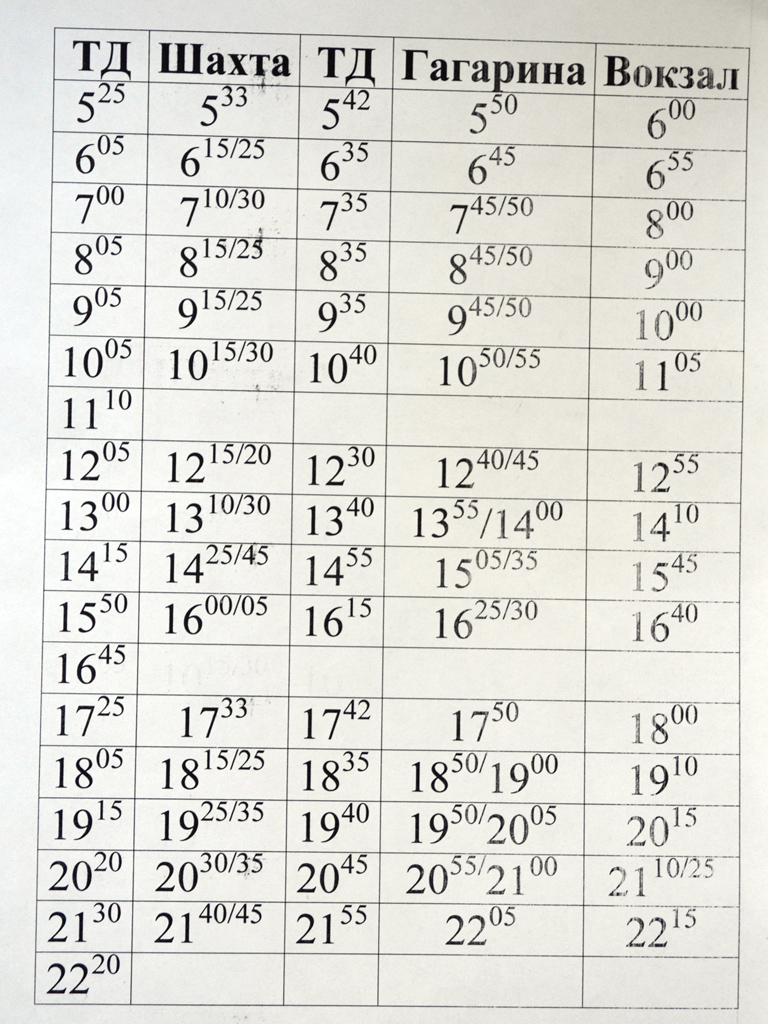 ТД Шахта ТД Гагарина Вокзал
5²⁵ 5³³ 5⁴² 5⁵⁰ 6⁰⁰
6⁰⁵ 6¹⁵/²⁵ 6³⁵ 6⁴⁵ 6⁵⁵
7⁰⁰ 7¹⁰/³⁰ 7³⁵ 7⁴⁵/⁵⁰ 8⁰⁰
8⁰⁵ 8¹⁵/²⁵ 8³⁵ 8⁴⁵/⁵⁰ 9⁰⁰
9⁰⁵ 9¹⁵/²⁵ 9³⁵ 9⁴⁵/⁵⁰ 10⁰⁰
10⁰⁵ 10¹⁵/³⁰ 10⁴⁰ 10⁵⁰/⁵⁵ 11⁰⁵
11¹⁰
12⁰⁵ 12¹⁵/²⁰ 12³⁰ 12⁴⁰/⁴⁵ 12⁵⁵
13⁰⁰ 13¹⁰/³⁰ 13⁴⁰ 13⁵⁵/14⁰⁰ 14¹⁰
14¹⁵ 14²⁵/⁴⁵ 14⁵⁵ 15⁰⁵/³⁵ 15⁴⁵
15⁵⁰ 16⁰⁰/⁰⁵ 16¹⁵ 16²⁵/³⁰ 16⁴⁰
16⁴⁵
17²⁵ 17³³ 17⁴² 17⁵⁰ 18⁰⁰
18⁰⁵ 18¹⁵/²⁵ 18³⁵ 18⁵⁰/19⁰⁰ 19¹⁰
19¹⁵ 19²⁵/³⁵ 19⁴⁰ 19⁵⁰/20⁰⁵ 20¹⁵
20²⁰ 20³⁰/³⁵ 20⁴⁵ 20⁵⁵/21⁰⁰ 21¹⁰/²⁵
21³⁰ 21⁴⁰/⁴⁵ 21⁵⁵ 22⁰⁵ 22¹⁵
22²⁰